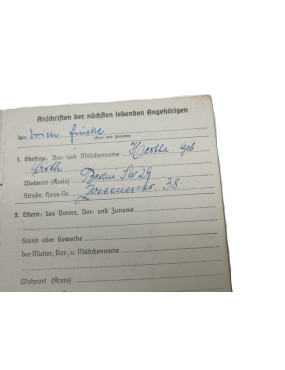 Anschriften der nächsten lebenden Angehörigen
des Erich Fincke
(Vor- und Zuname)
1. Ehefrau: Vor- und Mädchenname Hertha geb.
Groth
Wohnort (Kreis) Berlin SW 29
Straße, Haus-Nr. Zossenerstr. 38.
2. Eltern: des Vaters, Vor- und Zuname
Stand oder Gewerbe
der Mutter, Vor- u. Mädchenname
Wohnort (Kreis)